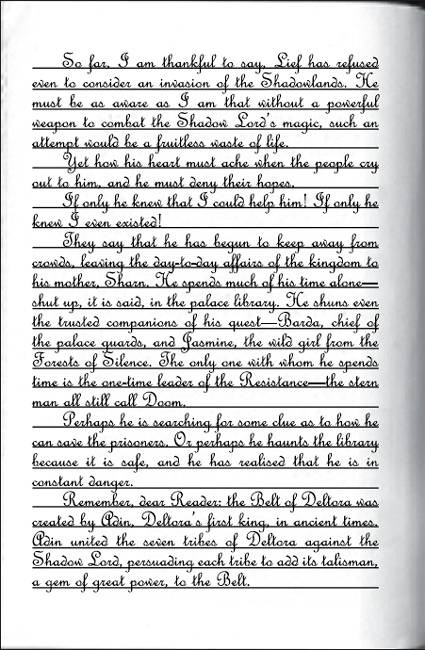 So far, I am thankful to say, Lief has refused
even to consider an invasion of the Shadowlands. He
must be as aware as I am that without a powerful
weapon to combat the Shadow Lord's magic, such an
attempt would be a fruitless waste of life.
Yet how his heart must ache when the people cry
out to him, and he must deny their hopes.
If only he knew that I could help him! If only he
knew I even existed!
They say that he has begun to keep away from
crowds, leaving the day-to-day affairs of the kingdom to
his mother, Sharn. He spends much of his time alone—
shut up, it is said, in the palace library. He shuns even
the trusted companions of his quest—Barda, chief of
the palace guards, and Jasmine, the wild girl from the
Forests of Silence. The only one with whom he spends
time is the one-time leader of the Resistance—the stern
man all still call Doom.
Perhaps he is searching for some clue as to how he
can save the prisoners. Or perhaps he haunts the library
because it is safe, and he has realised that he is in
constant danger.
Remember, dear Reader: the Belt of Deltora was
created by Adin, Deltora's first king, in ancient times.
Adin united the seven tribes of Deltora against the
Shadow Lord, persuading each tribe to add its talisman,
a gem of great power, to the Belt.